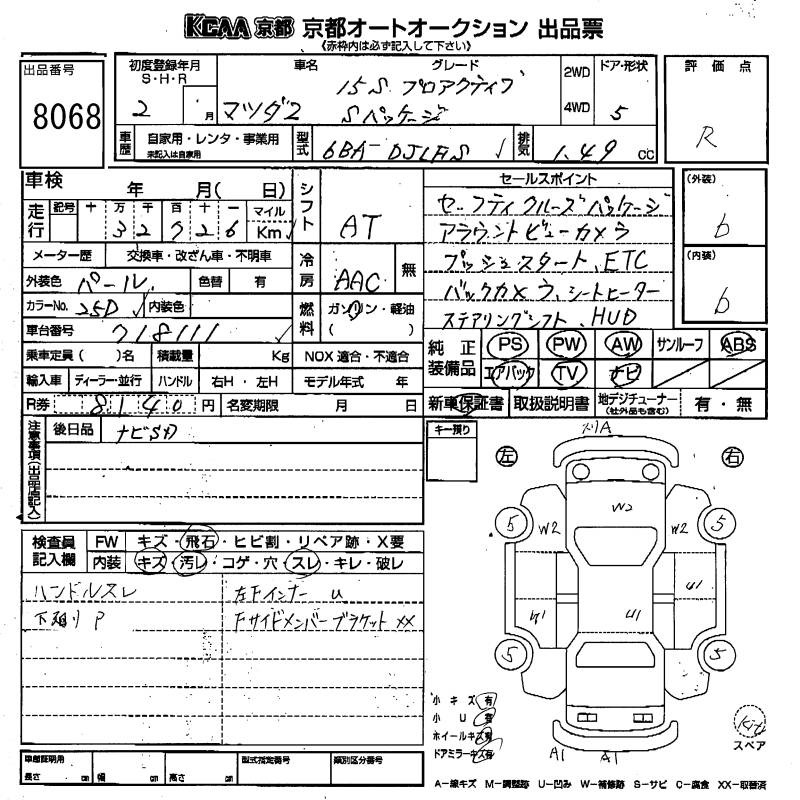 KCAA 京都 京都オートオークション 出品票
《赤枠内は必ず記入して下さい》
出品番号
8068
初度登録年月
S・H・R
2 月
車名
マツダ2
グレード
15S プロアクティブ
Sパッケージ
2WD
4WD
ドア・形状
5
評価点
R
車歴
自家用・レンタ・事業用
未記入は自家用
型式
6BA-DJLFS
排気
1.49 cc
車検 年 月( 日)
走行
記号 十 万 千 百 十 一 マイル
3 2 7 2 6 Km
シフト
AT
メーター歴
交換車・改ざん車・不明車
外装色
パール
色替 有
カラーNo.
25D
内装色
車台番号
718111
冷房
AAC
無
燃料
ガソリン・軽油
( )
乗車定員 ( )名
積載量 Kg
NOX 適合・不適合
輸入車
ディーラー・並行
ハンドル
右H・左H
モデル年式 年
R券 8140 円
名変期限 月 日
セールスポイント
セーフティクルーズパッケージ
アラウンドビューカメラ
プッシュスタート、ETC
バックカメラ、シートヒーター
ステアリングシフト、HUD
(外装)
b
(内装)
b
純正装備品
PS PW AW サンルーフ ABS
エアバック TV ナビ
新車保証書 取扱説明書 地デジチューナー
(社外品も含む)
有・無
注意事項(出品店記入)
後日品
ナビSD
キー残り
検査員記入欄
FW キズ・飛石・ヒビ割・リペア跡・X要
内装 キズ・汚レ・コゲ・穴・スレ・キレ・破レ
ハンドルスレ
左Fインナー U
下廻り P
Fサイドメンバーブラケット XX
左
右
A
W2
W2
W2
5
5
5
5
U1
U1
A1
A1
小キズ 有
小U 有
ホイールキズ 有
ドアミラーキズ 有
Kit
スペア
車庫証明用
長さ cm
幅 cm
高さ cm
型式指定番号
類別区分番号
A-線キズ M-調整跡 U-凹み W-補修跡 S-サビ C-腐食 XX-取替済